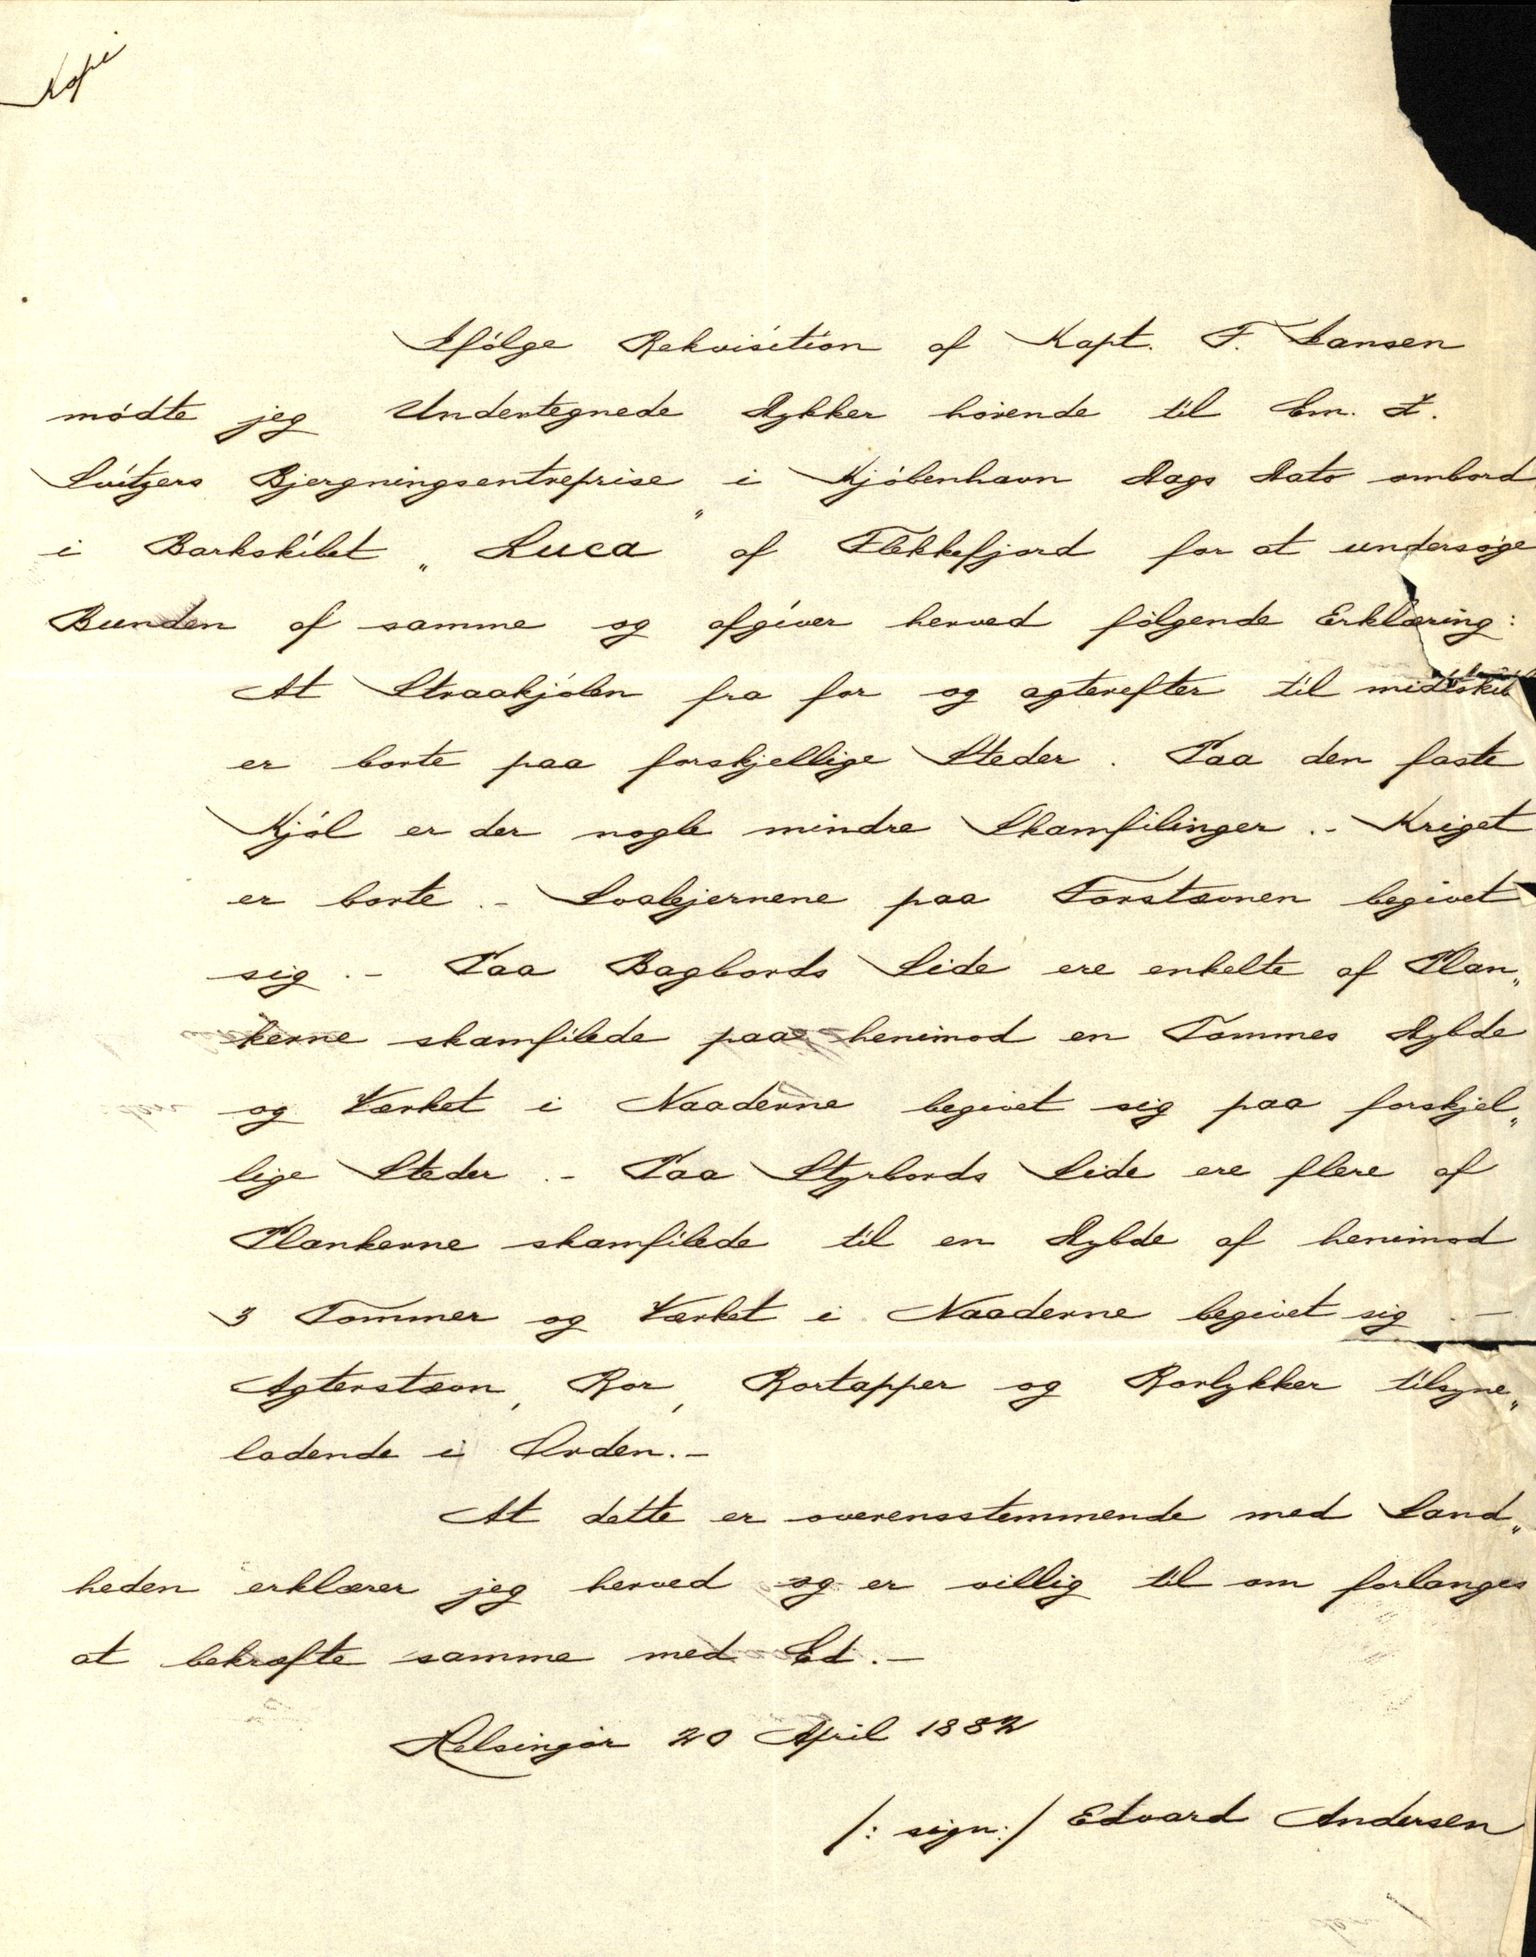 Kopi
Ifölge Rekvisition af Kapt. F. Jansen
mödte jeg Undertegnede Dykker hörende til Em. Z.
Svitzers Bjergningsentreprise i Kjöbenhavn Dags Dato ombord
i Barkskibet „Luca" af Flekkefjord for at undersøge
Bunden af samme og afgiver herved fölgende Erklæring:
At Straakjölen fra for og agterefter til midtskib
er borte paa forskjellige Steder. Paa den faste
Kjöl er der nogle mindre Skamfilinger.- Kriget
er borte.- Svaljernene paa Forstævnen begivet
sig.- Paa Bagbords Side ere enkelte af Plan„
kerne skamfilede paa henimod en Tommes Dybde
og Værket i Naaderne begivet sig paa forskjel„
lige Steder.- Paa Styrbords Side ere flere af
Plankerne skamfilede til en Dybde af henimod
3 Tommer og Værket i Naaderne begivet sig.-
Agterstævn, Ror, Rortapper og Rorlykker tilsyne„
ladende i Orden.-
At dette er overensstemmende med Sand„
heden erklærer jeg herved og er villig til om forlanges
at bekræfte samme med Ed.-
Helsingör 20 April 1882
/: sign:/ Edvard Andersen